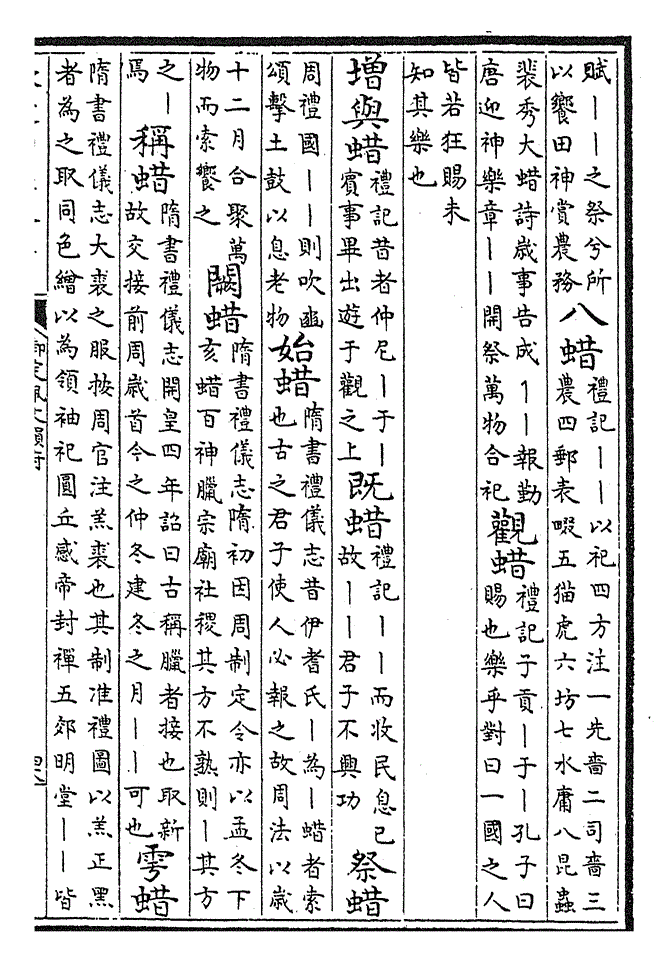 賦丨丨之祭兮所
以饗田神賞農務
八蜡
禮記丨丨以祀四方注一先嗇二司嗇三
農四郵表畷五猫虎六坊七水庸八昆蟲
裴秀大蜡詩歳事告成丨丨報勤
唐迎神樂章丨丨開祭萬物合祀
觀蜡
禮記子貢丨于丨孔子曰
賜也樂乎對曰一國之人
皆若狂賜未
知其樂也
增與蜡
禮記昔者仲尼丨于丨
賓事畢出遊于觀之上
既蜡
禮記丨丨而收民息已
故丨丨君子不興功
祭蜡
周禮國丨丨則吹豳
頌擊土鼓以息老物
始蜡
隋書禮儀志昔伊耆氏丨為丨蜡者索
也古之君子使人必報之故周法以歳
十二月合聚萬
物而索饗之
闕蜡
隋書禮儀志隋初因周制定令亦以孟冬下
亥蜡百神臘宗廟社稷其方不熟則丨其方
之丨
焉
稱蜡
隋書禮儀志開皇四年詔曰古稱臘者接也取新
故交接前周歳首今之仲冬建冬之月丨丨可也
雩蜡
隋書禮儀志大裘之服按周官注羔裘也其制准禮圖以羔正黑
者為之取同色繒以為領袖祀圓丘感帝封禪五郊明堂丨丨皆